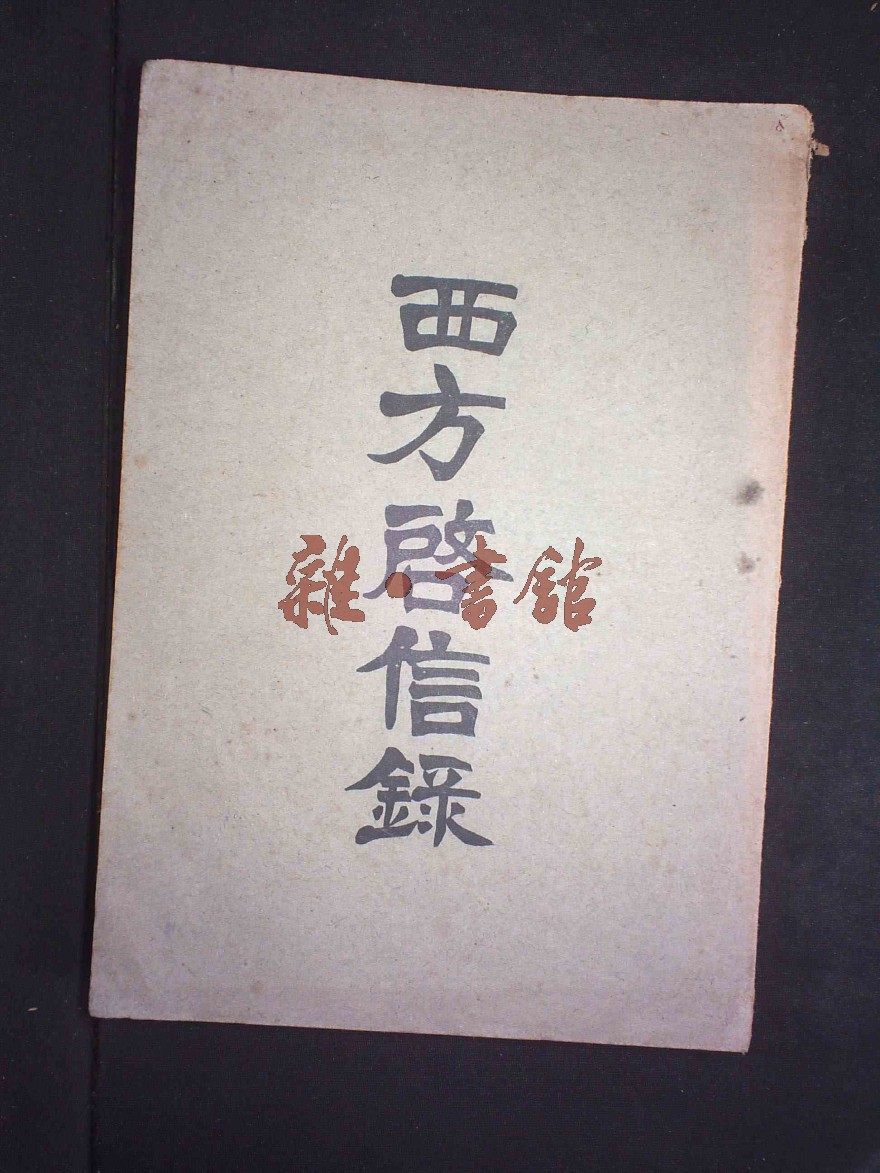 西方啓信錄
雜·書館